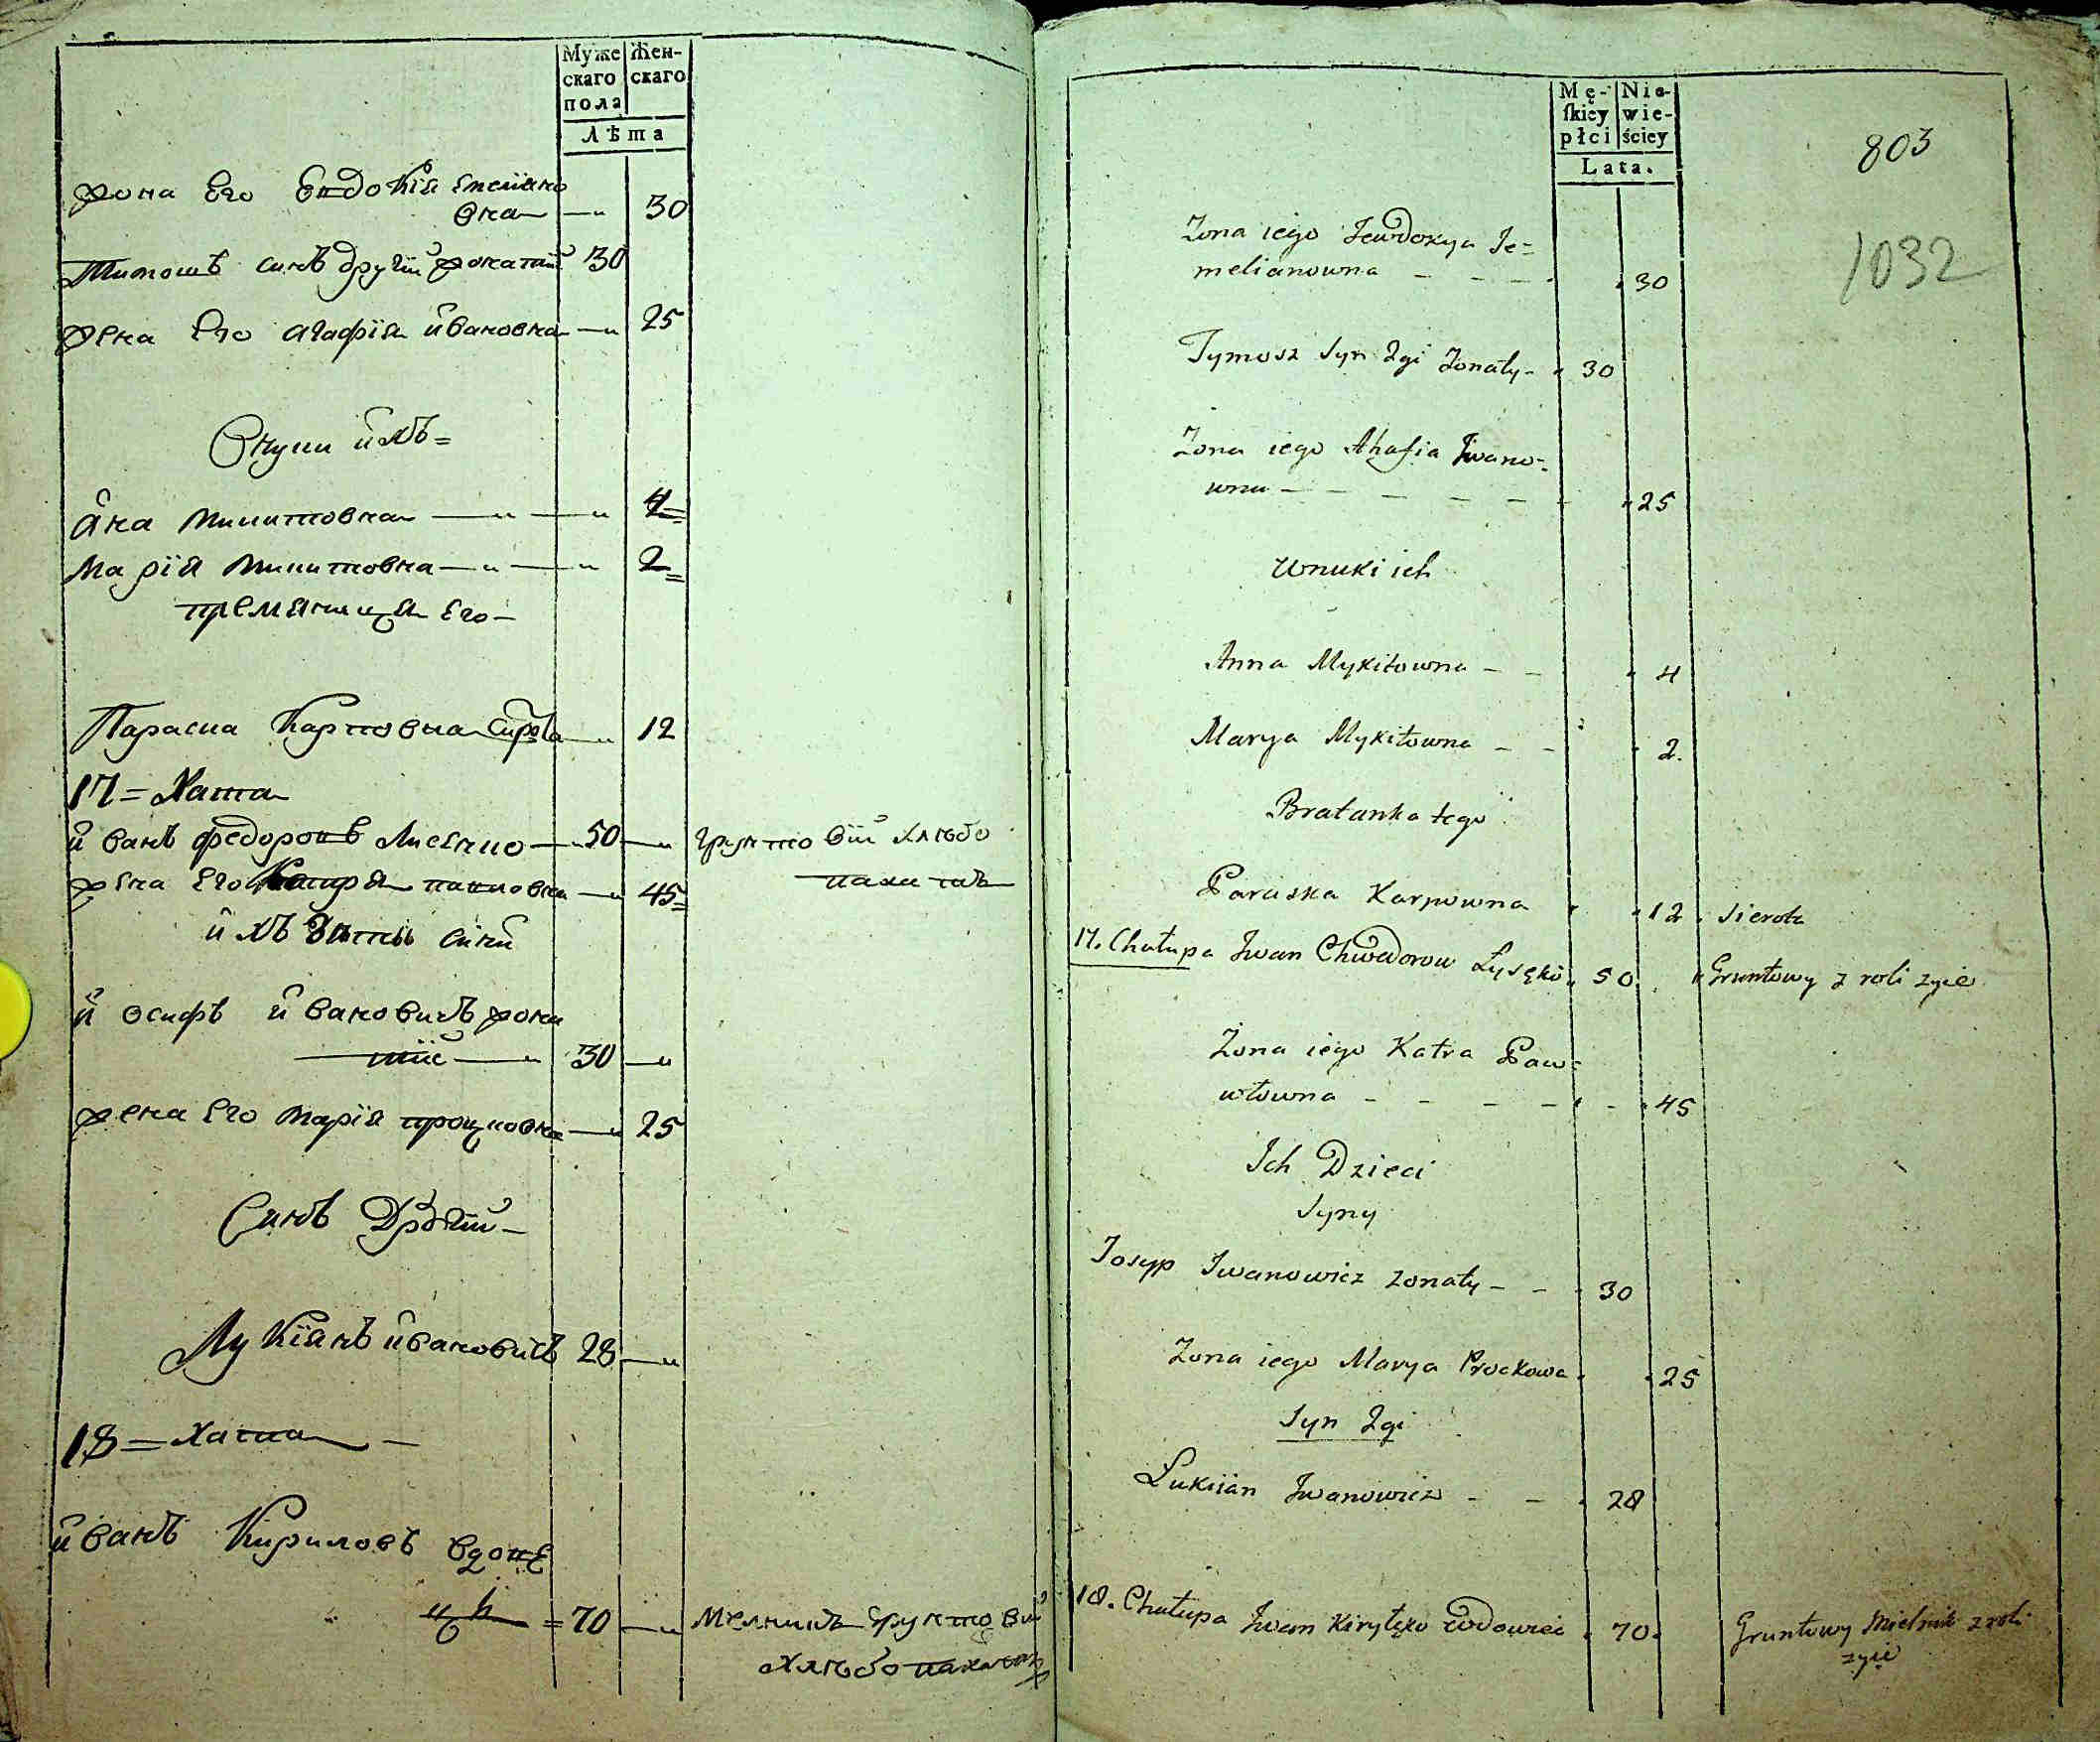 Муже
скаго
пола
Жен-
скаго
Лѣта
жона его Евдокія Емеліано
вна 30
Тимошъ синъ другій жонатий 30
жена его агафія йвановна 25
Внуки ихъ
Âна Микитовна 4
Марія Микитовна 2
племяница его
Параска Карповна Сирота 12
17 = Хата
йванъ федоровъ Лисенко 50 грунтовий хлѣбо
пахатъ
жена его Катря павловна 45
ихъ дѣти сини
йосифъ йвановичъ жона
тій 30
жена его Марія процковна 25
Синъ Другій
Лукіянъ йвановичъ 28
18 = хата
йванъ Кириловъ вдове
цъ = 70 Мелникъ грунтовий
хлѣбопахатъ
Mę-
ſkiey
płci
Nie-
wie-
ściey
Lata.
803
1032
Zona iego Jewdokya Je=
melianowna 30
Tymosz Syn 2gi Zonaty 30
Zona iego Ahafia Jwano=
wna 25
Wnuki ich
Anna Mykitowna 4
Marya Mykitowna 2.
Bratanka tego
Paraska Karpowna 12 Sierota
17. Chałupa Jwan Chwedorow Łysęko 50 Gruntowy z roli zyie
Żona iego Katra Paw=
włowna 45
Ich Dzieci
Syny
Josyp Jwanowicz zonaty 30
Zona iego Marya Prockowa 25
Syn 2gi
Łukiian Jwanowicz 28
18. Chałupa Jwan Kiryłęko Wdowiec 70. Gruntowy Mielnik z roli
zyie